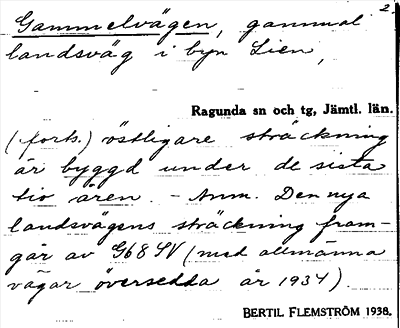 2.
Gammelvägen, gammal
landsväg i byn Lien,
Ragunda sn och tg, Jämtl. län.
(forts.) östligare sträckning
är byggd under de sista
tio åren. - Anm. Den nya
landsvägens sträckning fram-
går av G68 SV (med allmänna
vägar översedda år 1934).
BERTIL FLEMSTRÖM 1938.